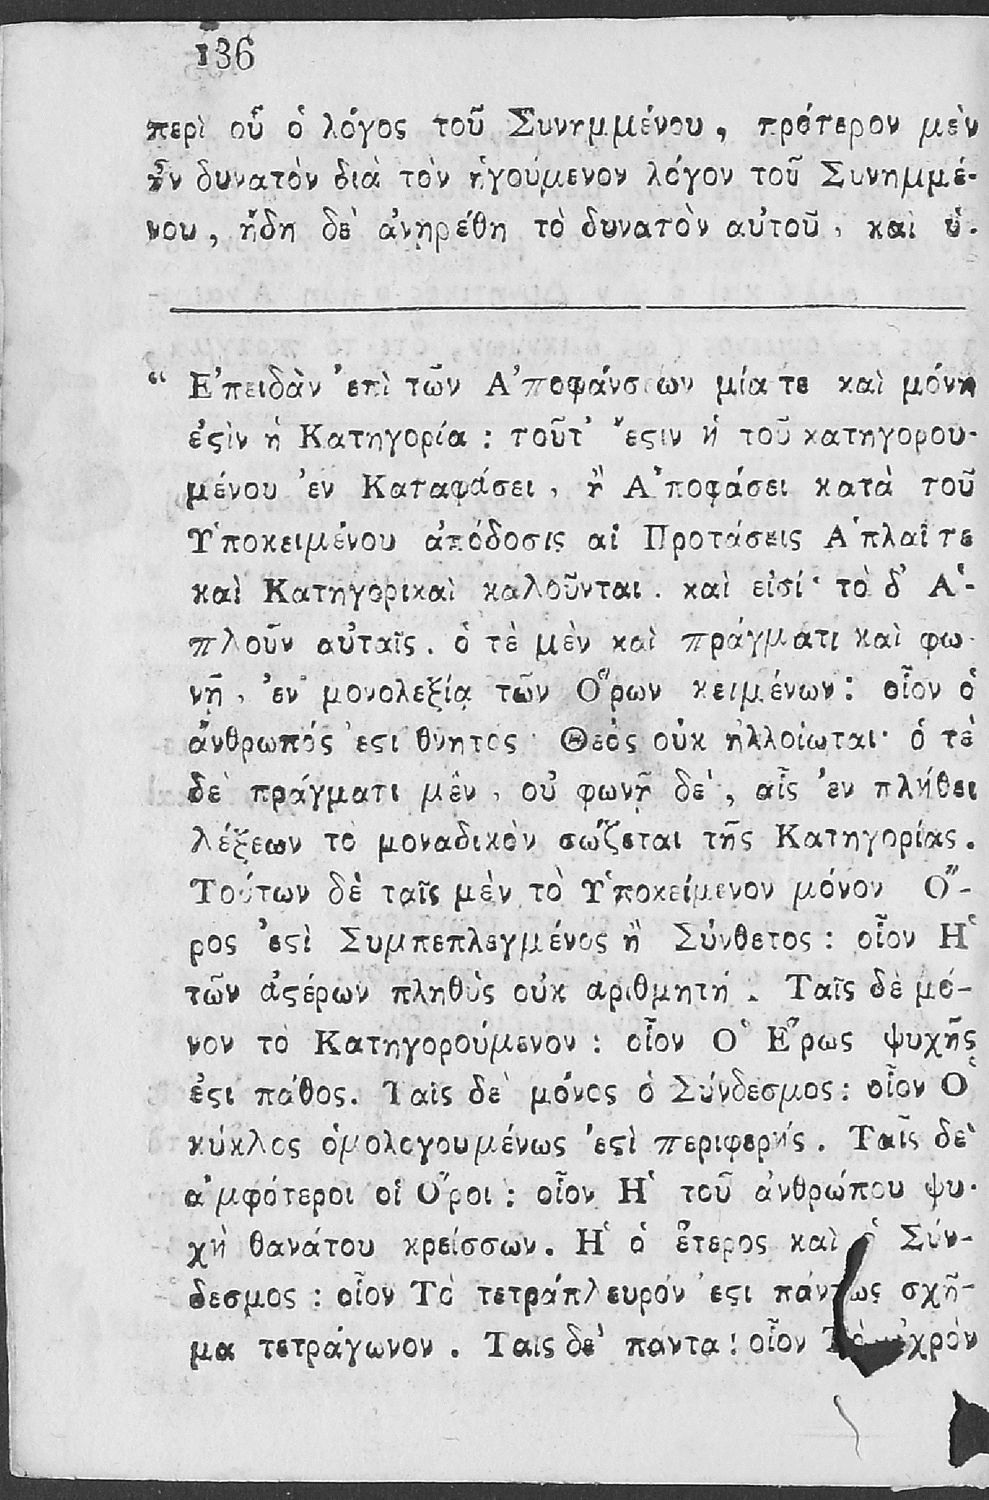 136
περὶ οὗ ὁ λόγος τοῦ Συνημμένου, πρότερον μὲν
ἦν δυνατὸν διὰ τὸν ἡγούμενον λόγον τοῦ Συνημμέ-
νου, ἤδη δὲ ἀνῃρέθη τὸ δυνατὸν αὐτοῦ, καὶ ὑ-
“ Ἐπειδὰν ἐπὶ τῶν Ἀποφάνσεων μία τε καὶ μόνη
ἐϛὶν ἡ Κατηγορία : τοῦτ' ἔϛιν ἡ τοῦ κατηγορου-
μένου ἐν Καταφάσει, ἢ Ἀποφάσει κατὰ τοῦ
Ὑποκειμένου ἀπόδοσις αἱ Προτάσεις Ἁπλαῖ τε
καὶ Κατηγορικαὶ καλοῦνται. καὶ εἰσί· τὸ δ' Ἁ-
πλοῦν αὐταῖς. ὁ τὲ μὲν καὶ πράγματι καὶ φω-
νῇ, ἐν μονολεξίᾳ τῶν Ὅρων κειμένων : οἷον ὁ
ἄνθρωπός ἐϛι θνητός· Θεὸς οὐκ ἠλλοίωται· ὁ τὲ
δὲ πράγματι μὲν, οὐ φωνῇ δὲ, αἷς ἐν πλήθει
λέξεων τὸ μοναδικὸν σώζεται τῆς Κατηγορίας.
Τούτων δὲ ταῖς μὲν τὸ Ὑποκείμενον μόνον Ὅ-
ρος ἐϛὶ Συμπεπλεγμένος ἢ Σύνθετος : οἷον Ἡ
τῶν ἀϛέρων πληθὺς οὐκ ἀριθμητή. Ταῖς δὲ μό-
νον τὸ Κατηγορούμενον : οἷον Ὁ Ἔρως ψυχῆς
ἐϛι πάθος. Ταῖς δὲ μόνος ὁ Σύνδεσμος : οἷον Ὁ
κύκλος ὁμολογουμένως ἐϛὶ περιφερής. Ταῖς δὲ
ἀμφότεροι οἱ Ὅροι : οἷον Ἡ τοῦ ἀνθρώπου ψυ-
χὴ θανάτου κρείσσων. Ἢ ὁ ἕτερος καὶ ὁ Σύν-
δεσμος : οἷον Τὸ τετράπλευρόν ἐϛι πάντως σχῆ-
μα τετράγωνον. Ταῖς δὲ πάντα : οἷον Τὸ